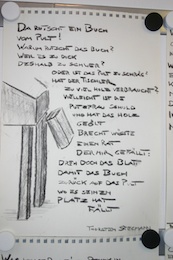 DA RUTSCHT EIN BUCH
VOM PULT!
WARUM RUTSCHT DAS BUCH?
WEIL ES ZU DICK
DESHALB ZU SCHWER?
ODER IST DAS PULT ZU SCHRÄG?
HAT DER TISCHLER
ZU VIEL HOLZ VERBRAUCHT?
VIELLEICHT IST DIE
PUTZFRAU SCHULD
UND HAT DAS HOLZ
GEÖLT
BRECHT WÜßTE
EINEN RAT
DER MIR GEFÄLLT:
DREH DOCH DAS BLATT
DAMIT DAS BUCH
ZURÜCK AUF DAS PULT
WO ES SEINEN
PLATZ HAT
FÄLLT
THORSTEN